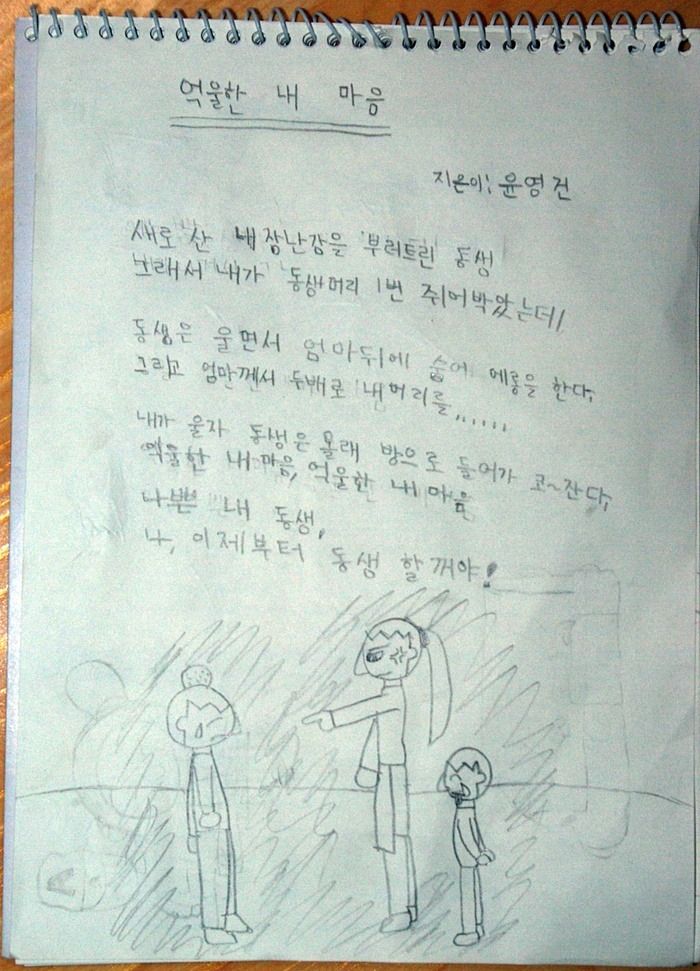 억울한 내 마음
지은이: 윤영건
새로 산 내장난감을 부러트린 동생
그래서 내가 동생머리 1번 쥐어박았는데!
동생은 울면서 엄마뒤에 숨어 메롱을 한다,
그리고 엄만께서 두배로 내머리를,,,,,,
내가 울자 동생은 몰래 방으로 들어가 코~잔다,
억울한 내 마음, 억울한 내 마음
나쁜 내 동생,
나, 이제부터 동생 할꺼야!